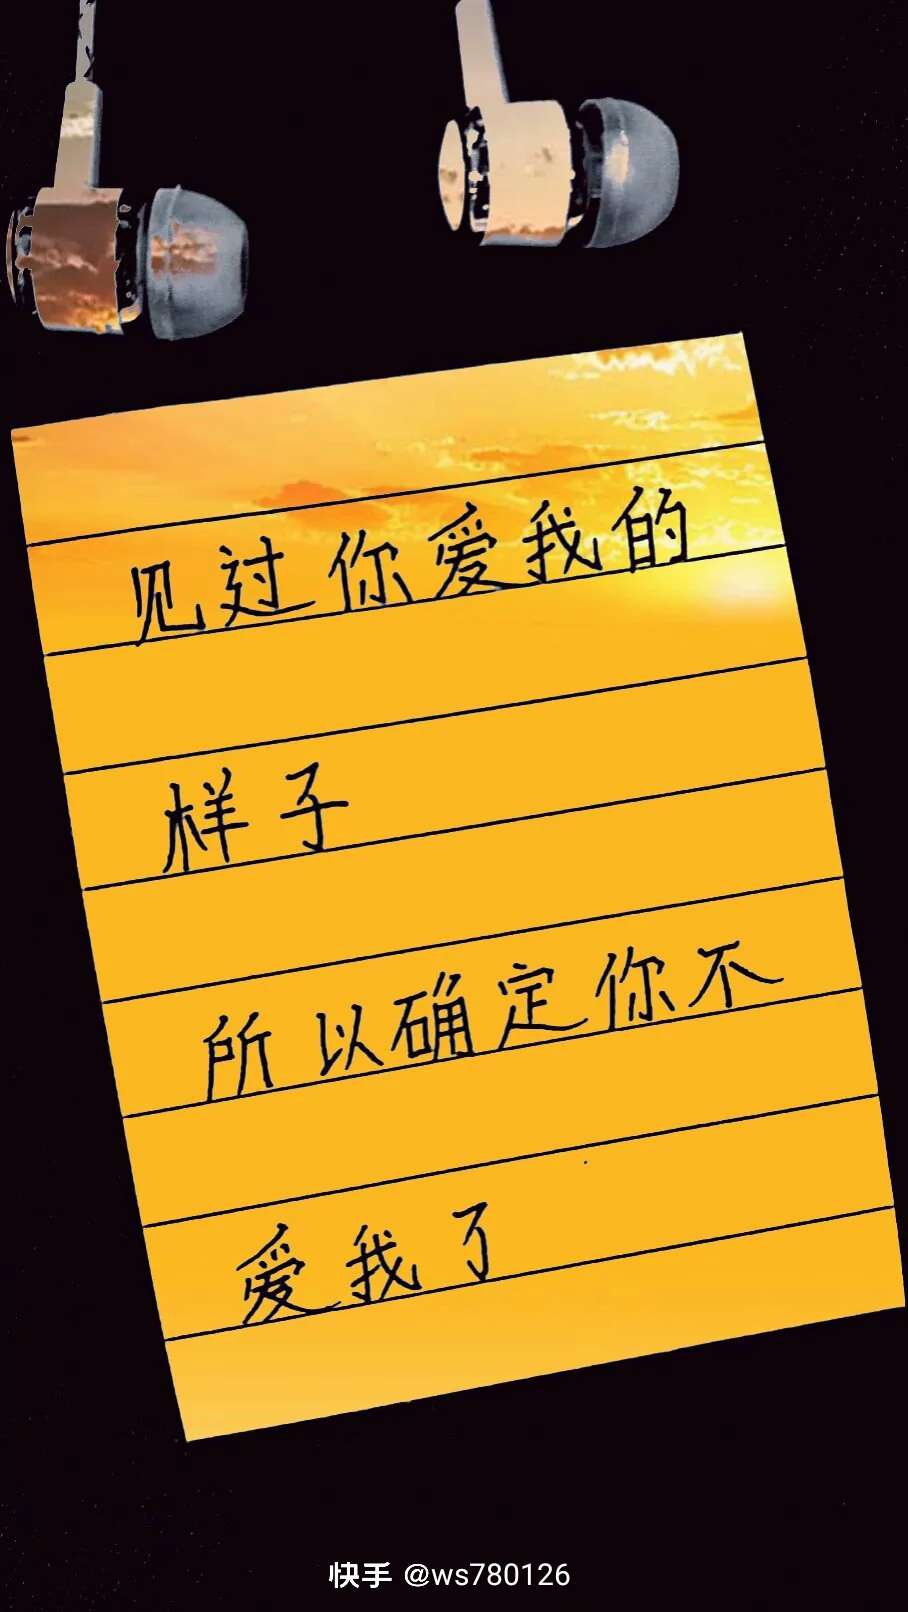 见过你爱我的
样子
所以确定你不
爱我了
快手 @ws780126